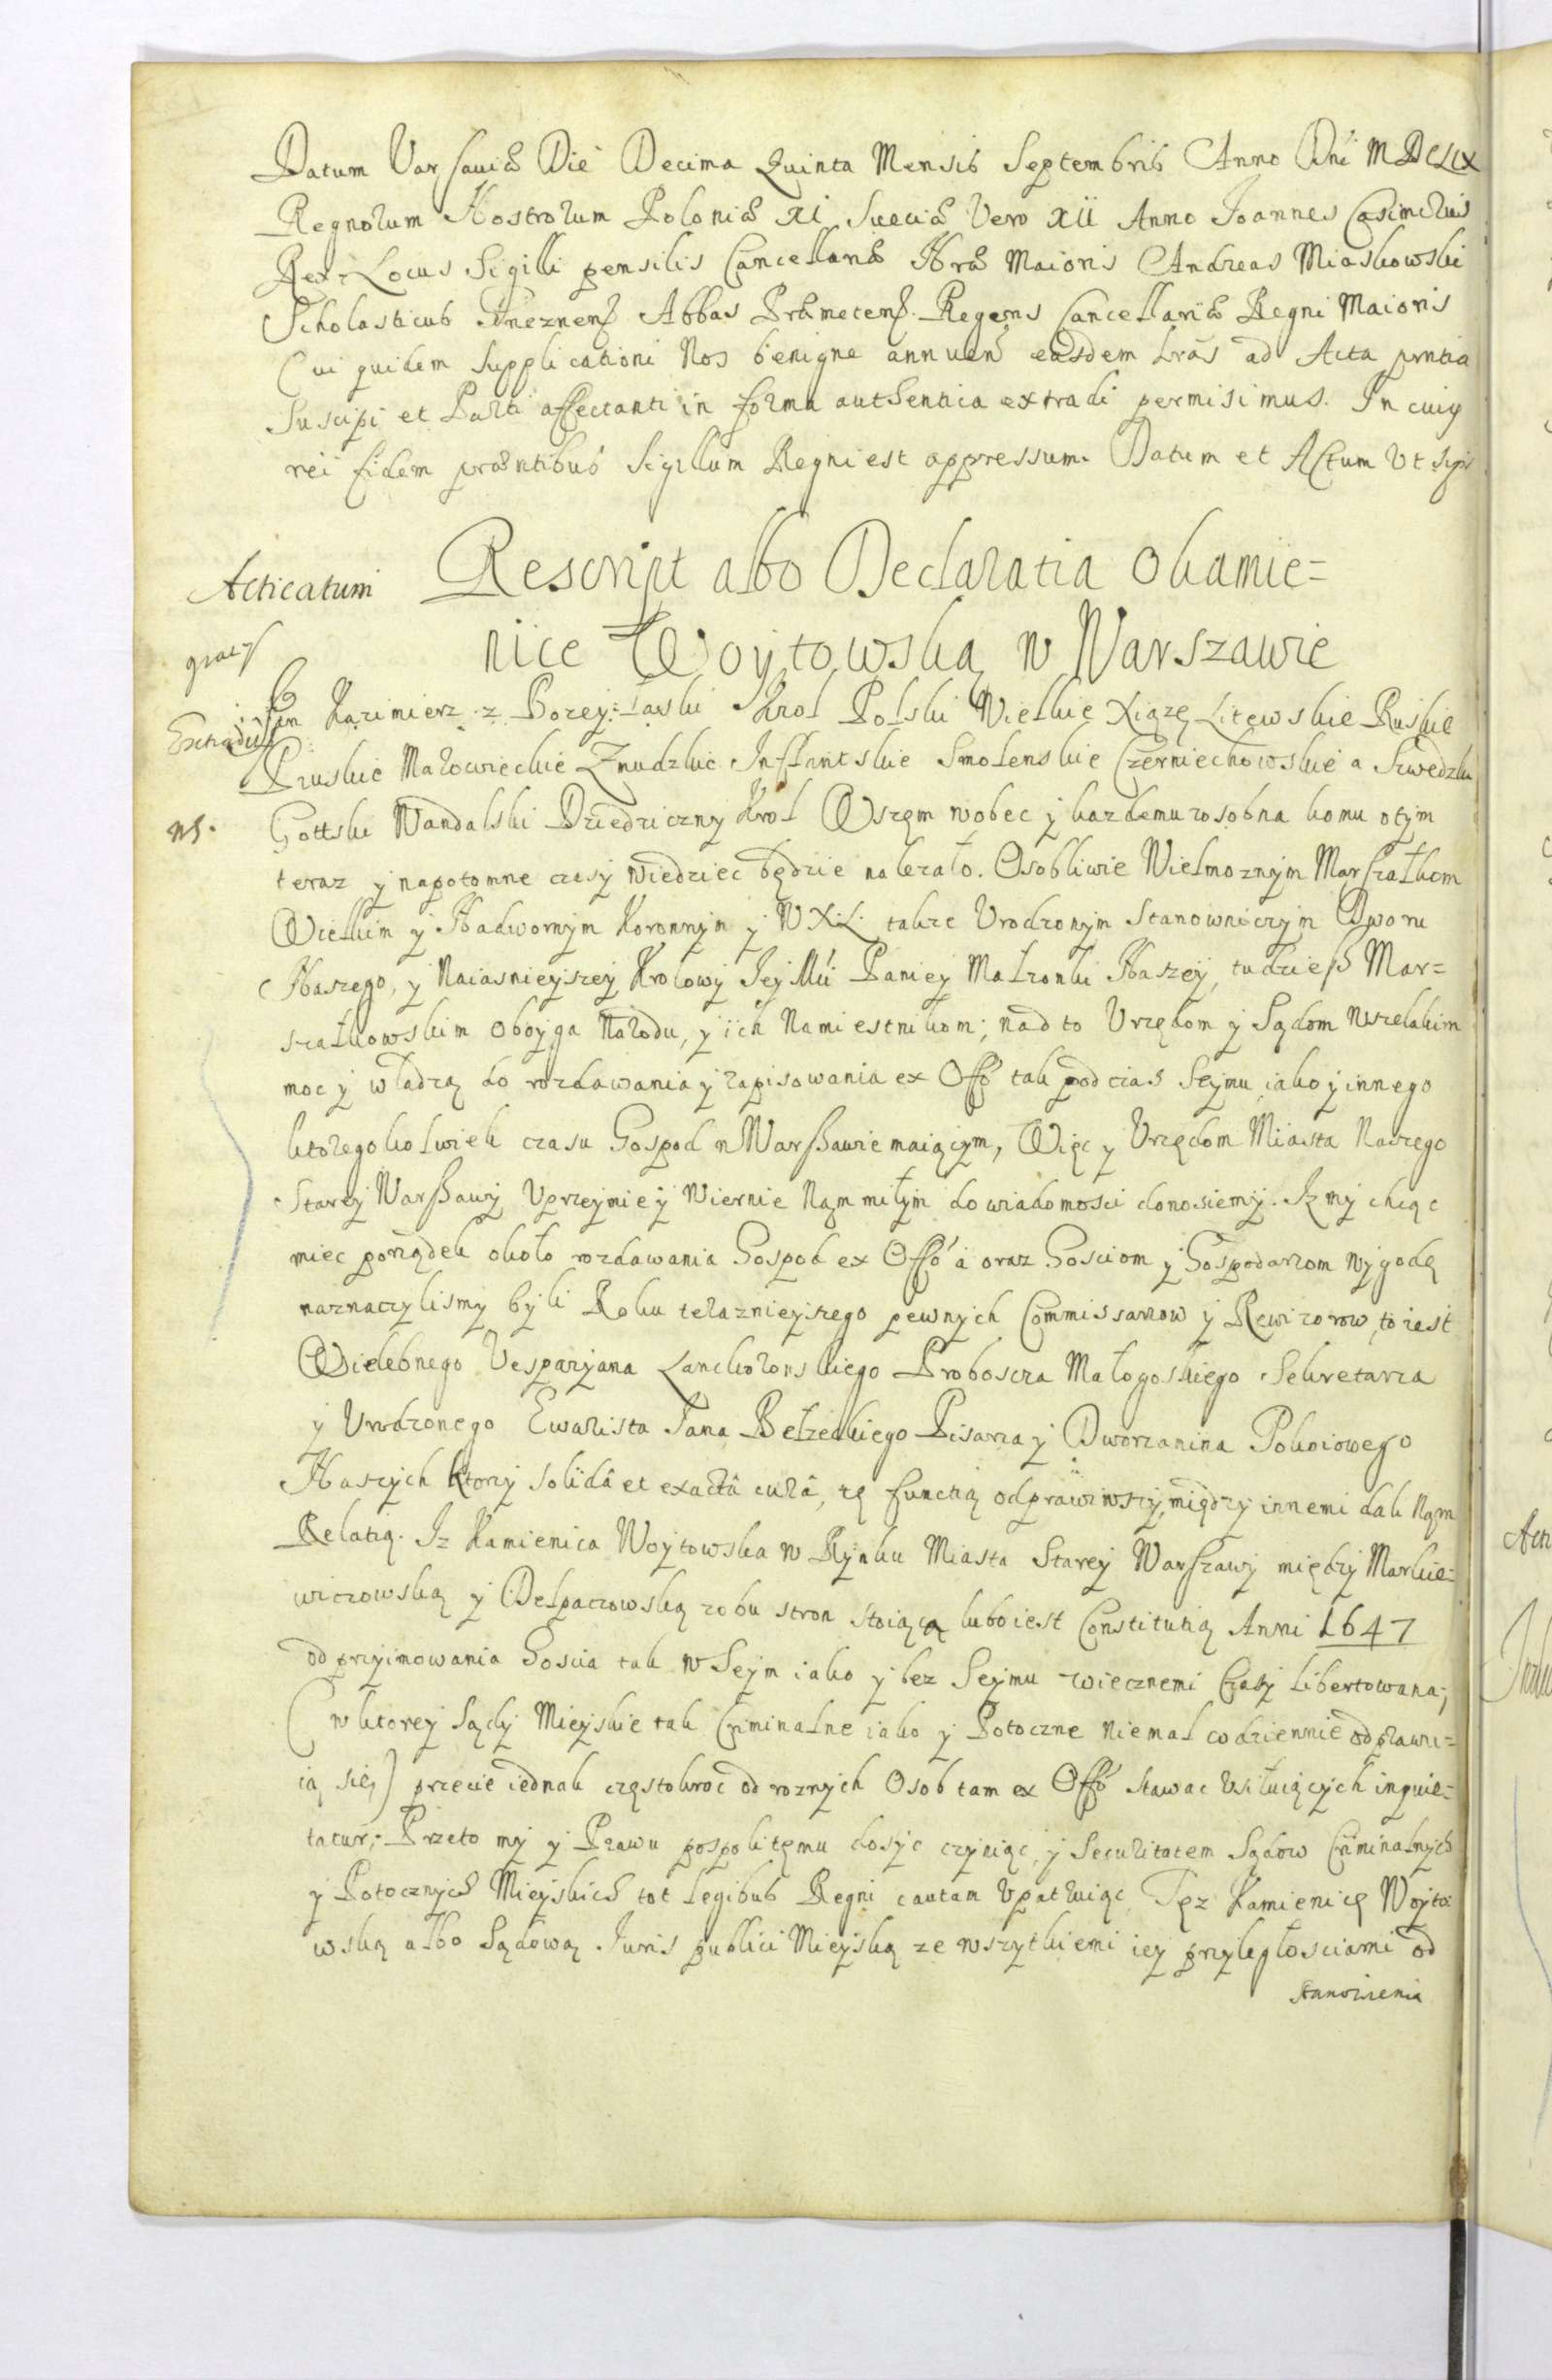 Datum Varsaviæ Die Decima Quinta Mensis Septembris Anno Dni MDCLIX
Regnorum Nostrorum Poloniæ XI Sueciæ Vero XII Anno Joannes Casimirus
Rex Locus Sigilli pensilis Cancellariæ Nræ Maioris Andreas Miaskowski
Scholasticus Gneznen Abbas Præmeten. Regens Cancellariæ Regni Maioris
Cui quidem supplicationi Nos benigne annuen easdem Lras ad Acta prntia
Suscipi et Parti affectanti in forma authentica extradi permisimus. In cuiq
rei fidem præntibus Sigillum Regni est appressum. Datum et Actum Ut sup
Acticatum
Rescript albo Declaratia o kamie=
nice Woytowską w Warszawie
Jan Kazimierz z Bozey łaski Krol Polski Wielkie Xiązę Litewskie Ruskie
Pruskie Mazowieckie Zmudzkie Inflantskie Smolenskie Czerniechowskie a Szwedzki
Gottski Wandalski Dziedziczny Krol Wszem wobec y kazdemu zosobna komu otym
teraz y napotomne czasy wiedziec będzie nalezało. Osobliwie Wielmoznym Marszałkom
Wielkim y Nadwornym Koronnym y WXL. takze Urodzonym Stanowniczym Dworu
Naszego, y Naiasnieyszey Krolowy Jey Mci Paniey Małzonki Naszey, tudziesz Mar=
szałkowskim oboyga Narodu, y ich Namiestnikom; nad to Urzędom y Sądom wszelakim
moc y władzą do rozdawania y zapisowania ex Offo tak podczas Seymu iako y innego
ktoregokolwiek czasu Gospod w Warszawie maiącym, Więc y Urzędom Miasta Naszego
Starey Warszawy Uprzeymie y Wiernie Nam miłym do wiadomosci donosiemy. Iz my chcąc
miec porządek około rozdawania Gospod ex Offo a oraz Gosciom y Gospodarzom wygodę
naznaczylismy byli Roku terazniejszego pewnych Commissarzow y Rewizorow, to iest
Wielebnego Vespazyana Lanckoronskiego Proboscza Małogoskiego Sekretarza
y Urodzonego Ewarista Jana Bełzeckiego Pisarza y Dworzanina Pokoiowego
Naszych ktorzy solidâ et exactâ curâ, tę functią odprawiwszy, między innemi dali Nam
Relatią. Iz Kamienica Woytowska w Rynku Miasta Starey Warszawy między Markie=
wiczowską y Delpaczowską z obu stron stoiąca lubo iest Constitutią Anni 1647
od przyimowania Goscia tak w Seym iako y bez Seymu wiecznemi Czasy libertowana;
(w ktorey Sądy Mieyskie tak Criminalne iako y Potoczne niemal codziennie odprawu=
ią się) przecie iednak częstokroc od roznych Osob tam ex Offo stawac usiłuiących inquie=
tatur; Przeto my y Prawu pospolitemu dosyc czyniąc, y Securitatem Sądow Criminalnych
y Potocznych Mieyskich tot legibus Regni cautam upatruiąc Tęz Kamienicę Woyto
wską albo Sądową Juris publici Mieyską ze wszytkiemi iey przyległosciami od
stanowienia